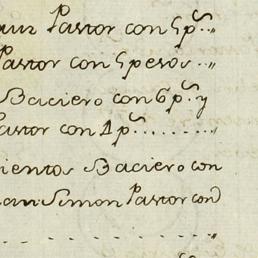 Pastor con 5 p.s..„
Pastor con 5 pesos..„
Baciero con 6 p.s y
Pastor con 1 p.s.........„
ientos Baciero con
an Simon Pastor con
. . . . . . . . . . „